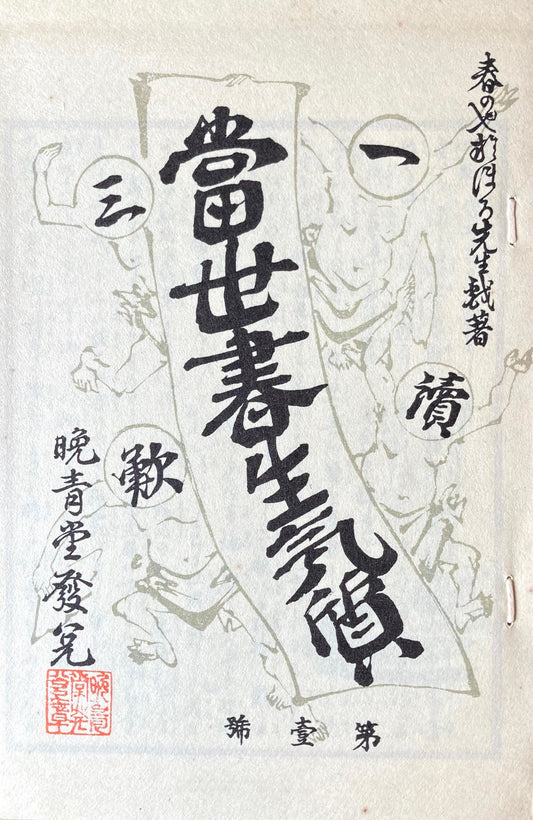 春のやおぼろ先生戯著
一
讀
三
歎
當世書生氣質
晩青堂發兌
第壹號